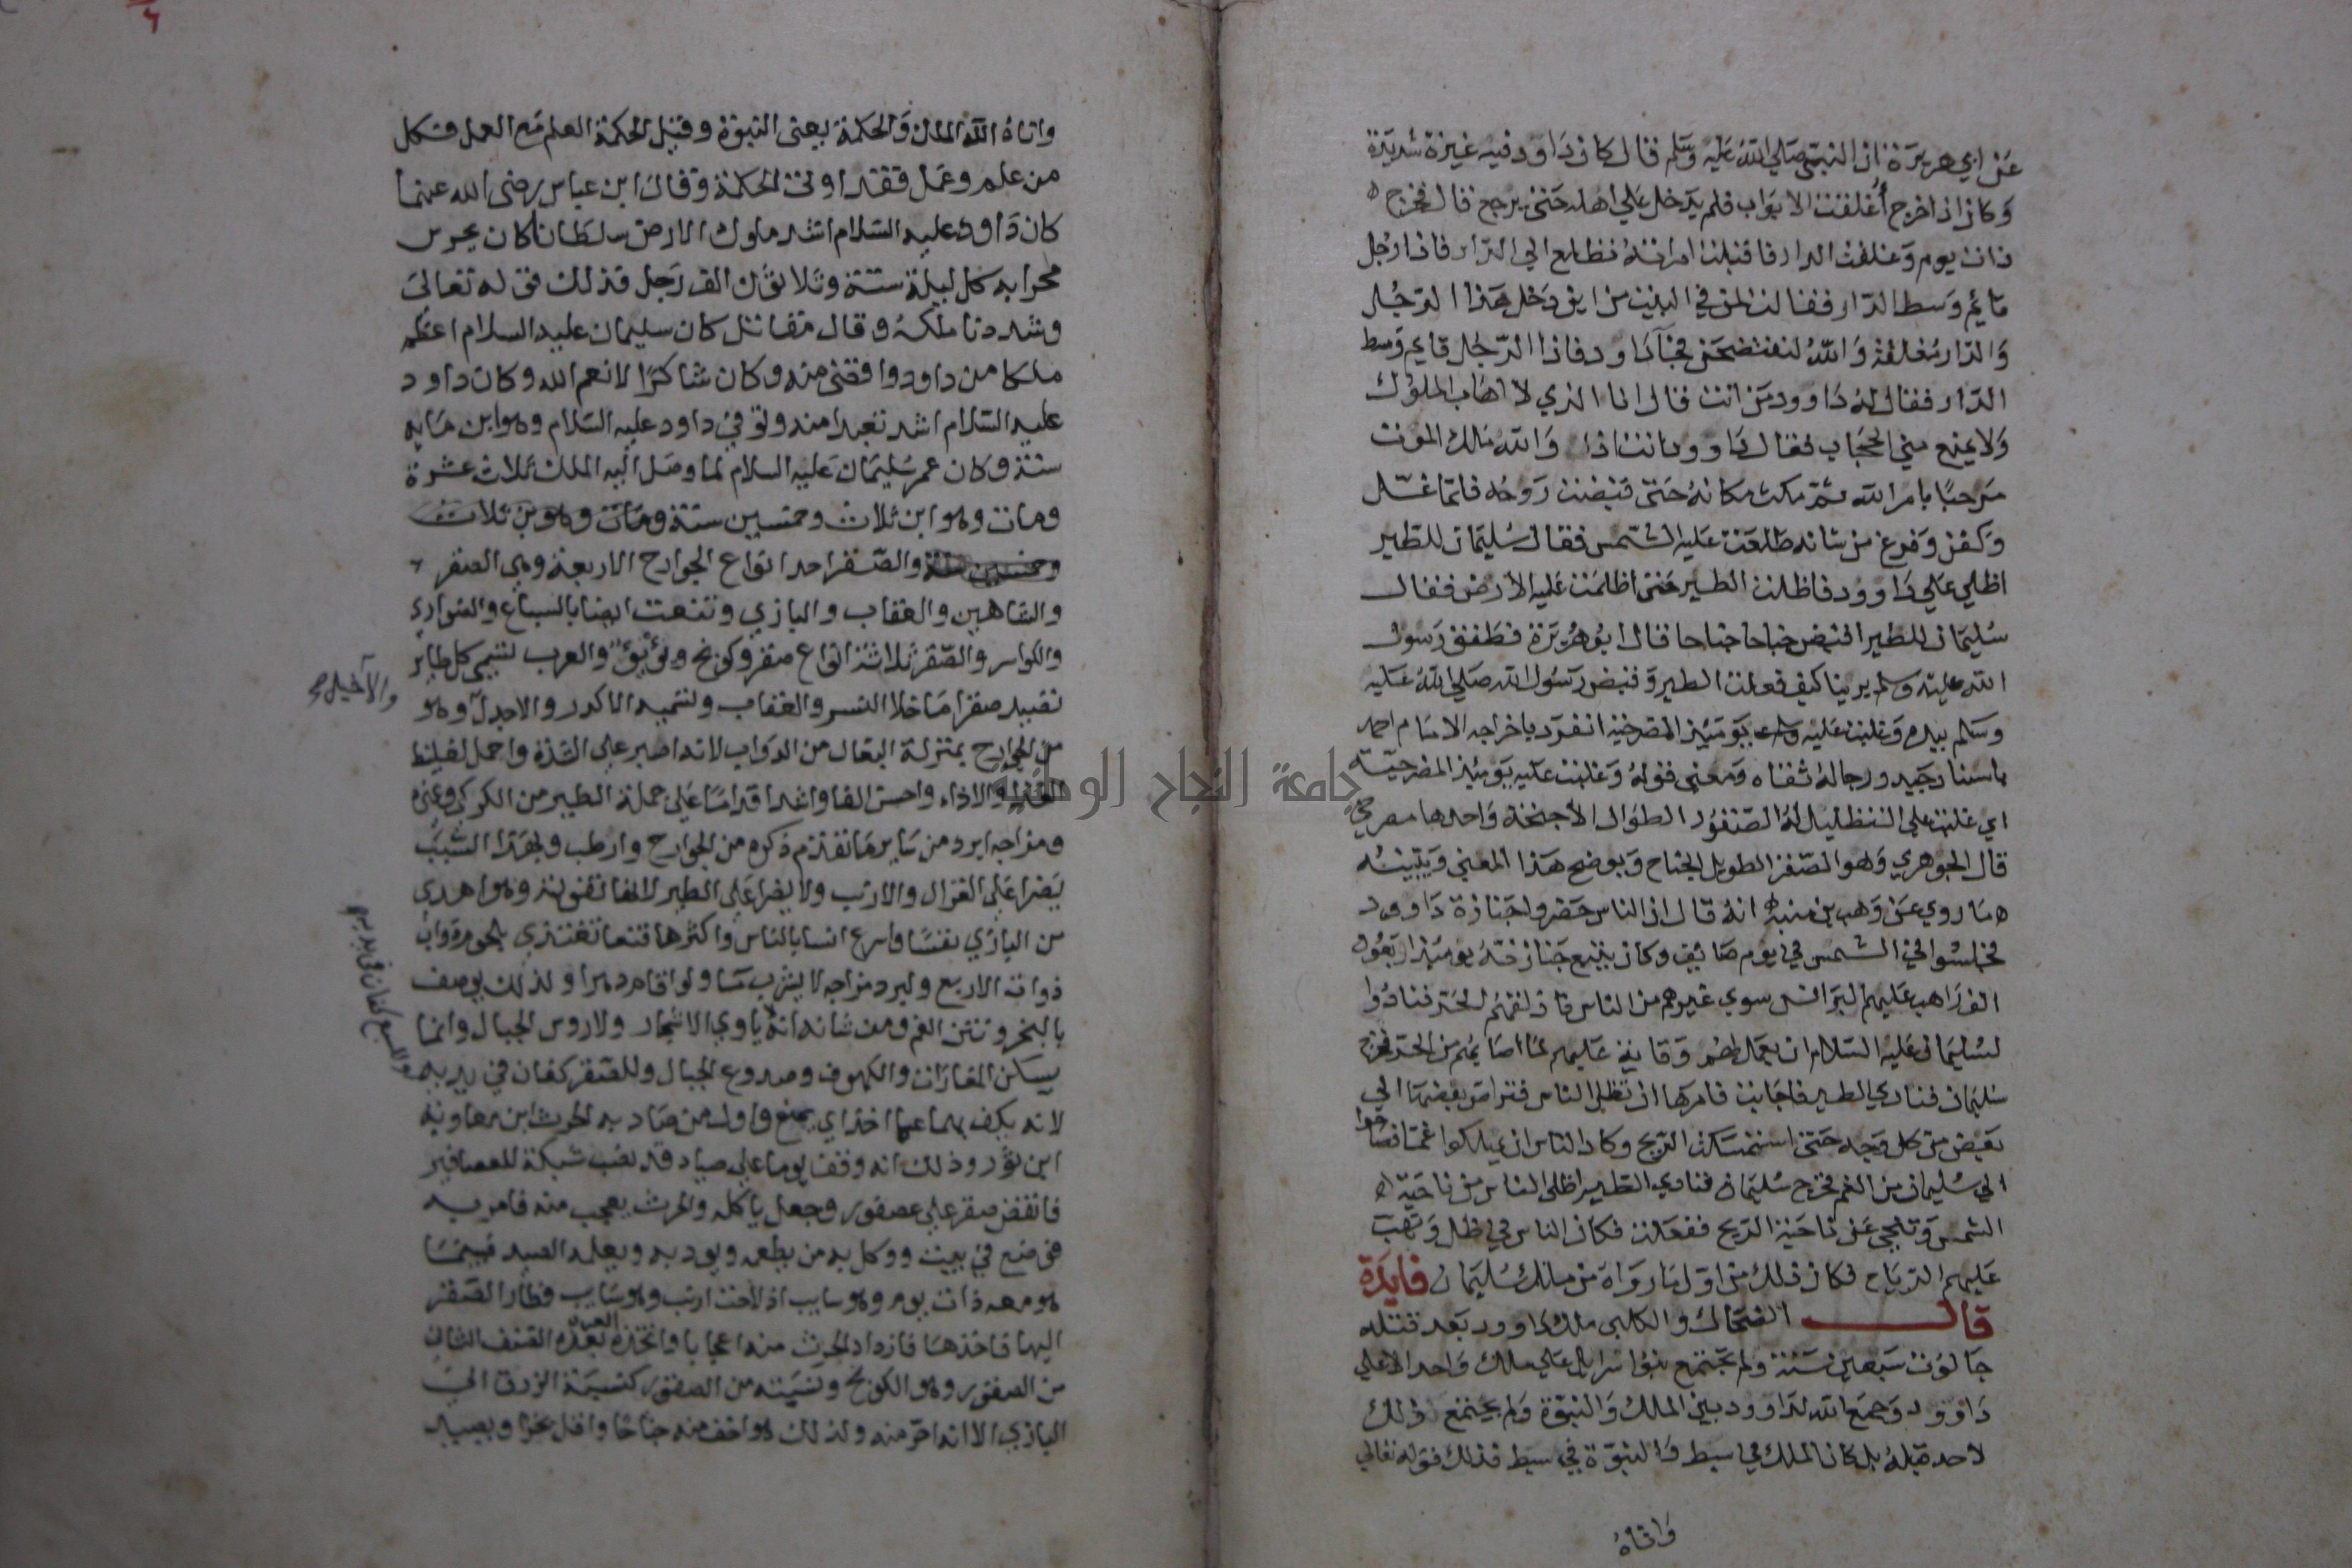 عن ابي هريرة ان النبي صلي الله عليه وسلم قال كان داود فيه غيرة شديدة
وكان اذا خرج أغلقت الابواب فلم يدخل علي اهله حتى يرجع قال فخرج
ذات يوم وغلقت الدار فاقبلت امراته تطلع الي الدار فاذا رجل
قايم وسط الدار فقالت لمن في البيت من اين دخل هذا الرجل
والدار مغلقة والله لنفتضحن فجآ داود فاذا الرجل قايم وسط
الدار فقال له داوود من انت قال انا الذي لا اهاب الملوك
ولا يمنع مني الحجاب فقال داوود انت اذا والله ملك الموت
مرحبًا بامر الله ثم مكث مكانه حتى قبضت روحه فلما غسل
وكفن وفرغ من شانه طلعت عليه الشمس فقال سليمان للطير
اظلي علي داوود فاظلت الطير حتى اظلمت عليه الارض فقال
سليمان للطير اقبضي جناحا جناحا قال ابو هريرة فطفق رسول
الله عليه وسلم يرينا كيف فعلت الطير وقبض رسول الله صلي الله عليه
وسلم بيده وغلبت عليه يوميذ المضرحية انفرد باخراجه الامام احمد
باسناد جيد ورجاله ثقاة ومعني قوله وغلبت عليه يوميذ المضرحية
اي غلبت علي التظليل له الصقور الطوال الاجنحة واحدها مضرحي
قال الجوهري وهو الصقر الطويل الجناح ويوضح هذا المعني ويبينه
ما روي عن وهب بن منبه انه قال ان الناس حضروا جنازة داوود
فجلسوا في الشمس في يوم صايف وكان يتبع جنازته يوميذ اربعون
الف راهب عليهم البرانس سوي غيرهم من الناس فاذلقهم الحر فنادوا
لسليمان عليه السلام ان يعمل لهم وقاية عليهم لما اصابهم من الحر فخرج
سليمان فنادي الطير فاجابت فامرها ان تظل الناس فتراص بعضها الي
بعض من كل وجه حتى استمسكت الريح وكاد الناس ان يهلكوا غمًا فصاحوا
الي سليمان من الغم فخرج سليمان فنادي الطير اظلي الناس من ناحية
الشمس وتنحي عن ناحية الريح ففعلت فكان الناس في ظل وتهب
عليهم الرياح فكان ذلك من اول ما رواه من ملك سليمان فايدة
قال الضحاك والكلبي ملك داوود بعد قتله
جالوت سبعين سنة ولم يجتمع بنوا اسرايل علي ملك واحد الا علي
داوود وجمع الله لداوود بين الملك والنبوة ولم يجتمع ذلك
لاحد قبله بل كان الملك في سبط والنبوة في سبط فذلك قوله تعالي
واتاه
واتاه الله الملك والحكمة يعنى النبوة وقيل الحكمة العلم مع العمل فكل
من علم وعمل فقد اوتى الحكمة وقال ابن عباس رضى الله عنهما
كان داود عليه السلام اشد ملوك الارض سلطانا كان يحرس
محرابه كل ليلة ستة وثلاثون الف رجل فذلك قوله تعالى
وشددنا ملكه وقال مقاتل كان سليمان عليه السلام اعظم
ملكا من داود واقضى منه وكان شاكرًا لانعم الله وكان داود
عليه السلام اشد تعبدا منه وتوفي داود عليه السلام وهو ابن مايه
سنة وكان عمر سليمان عليه السلام لما وصل اليه الملك ثلاث عشرة
ومات وهو ابن ثلاث وخمسين سنة ومات وهو بن ثلاث
وخمسين سنة والصقر احد انواع الجوارح الاربعة وهي الصقر
والشاهين والعقاب والبازي وتنعت ايضا بالسباع والضواري
والكواسر والصقر ثلاثة انواع صقر وكونج ويؤيؤ والعرب تسمي كل طاير
يصيد صقرا ما خلا النسر والعقاب وتسميه الاكدر والاجدل وهو
والاخيل صح
من الجوارح بمنزلة البغال من الدواب لانه اصبر علي الشدة واحمل لغليظ
الغذا والاذاء واحسن الفا واشد اقداما علي جملة الطير من الكركي وغيره
ومزاجه ابرد من ساير ما تقدم ذكره من الجوارح وارطب وبهذا السبب
يضرا علي الغزال والارنب ولا يضرا علي الطير لانها تفوته وهو اهدي
من البازي نفسًا واسرع انسا بالناس واكثرها قنعا تغتذي بلحوم
ذوات الاربع ولبرد مزاجه لا يشرب ماء ولو اقام دهرا ولذلك يوصف
بالبخر ونتن الفم ومن شانه انه لا ياوي الاشجار ولا روس الجبال وانما
يسكن المغارات والكهوف وصدوع الجبال وللصقر كفان في يديه
وللسبع كفان في يديه
لانه يكف بهما عما اخذ اي يمنع واول من صاد به الحرث ابن معاوية
ابن ثور وذلك انه وقف يوما علي صياد قد نصب شبكة للعصافير
فانقض صقر علي عصفور وجعل ياكله والحرث يعجب منه فامر به
فوضع في بيت ووكل به من يطعمه ويودبه ويعلمه الصيد فبينما
هو معه ذات يوم وهو سايب اذ لاحت ارنب وهو سايب فطار الصقر
اليها فاخذها فازداد الحرث منه اعجابا واتخذه العرب بعده الصنف الثاني
من الصقور وهو الكونج ونسبته من الصقور كنسبة الزرق الي
البازي الا انه احر منه ولذلك هو اخف منه جناحًا واقل بخرا ويصيد
جامعة النجاح الوطنية